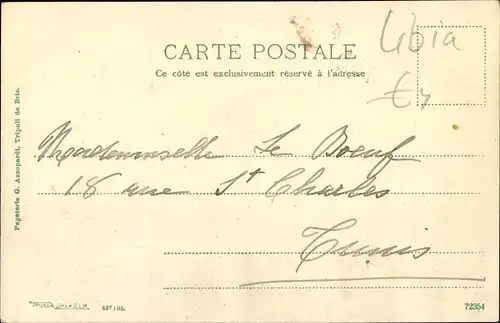 CARTE POSTALE
Ce côté est exclusivement réservé à l'adresse
Libia
Mademoiselle Le Boeuf
18 rue St Charles
Tunis
Papeterie G. Azzopardi, Tripoli de Brie.
427:05.
72354